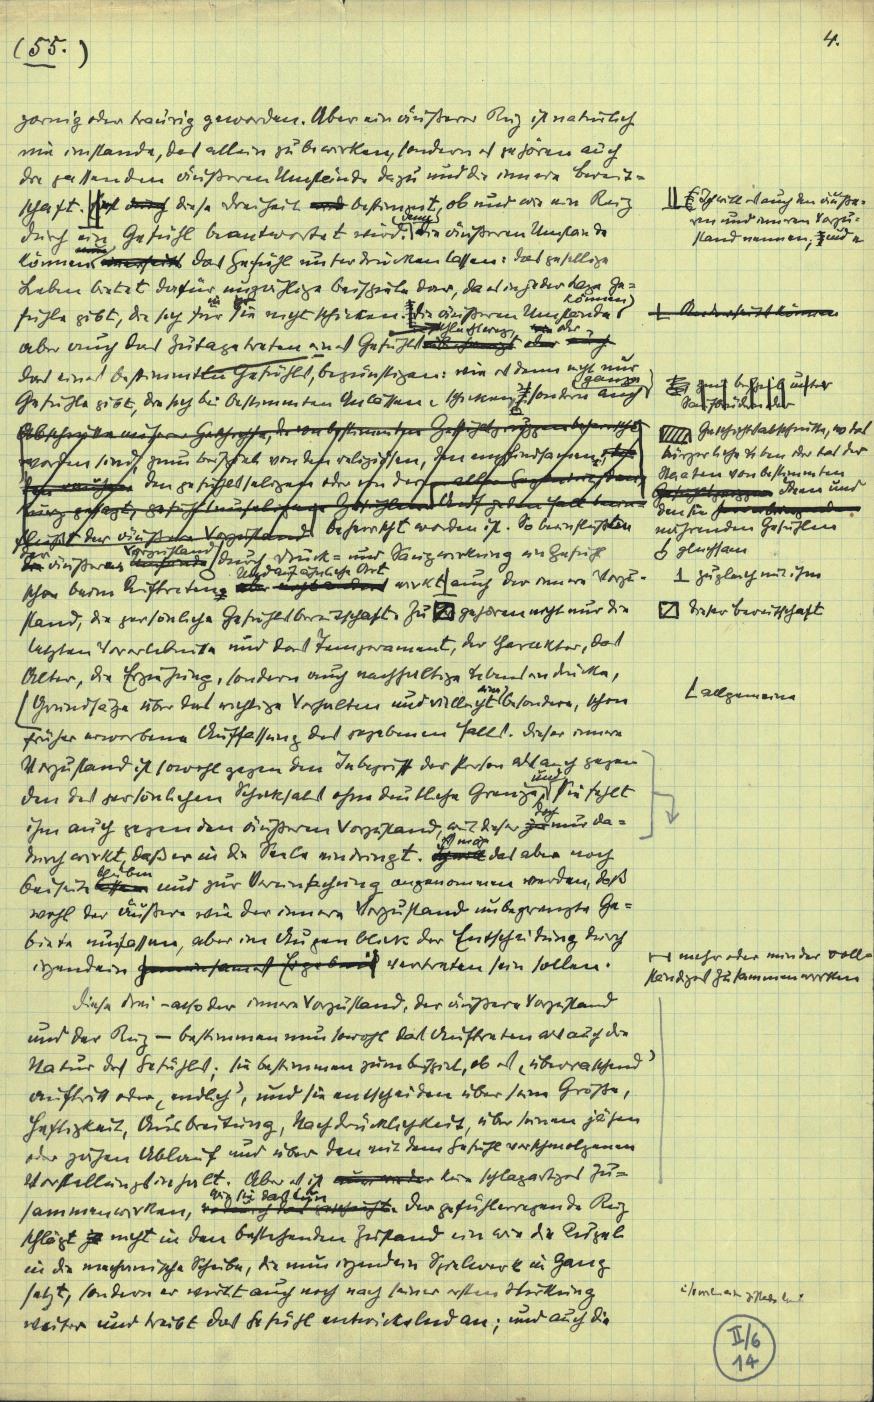 (55.)
4.
zornig oder traurig geworden. Aber ein äußerer Reiz ist natürlich
nie imstande, das allein zu bewirken, sondern es gehören auch
die passenden äußeren Umstände dazu und die innere Bereit-
schaft. diese Dreiheit bestimmt, ob und wie ein Reiz
durch ein Gefühl beantwortet wird. Denn die äußeren Umstände
können das Gefühl unterdrücken lassen: das gesellige
Leben bietet dafür unzählige Beispiele dar, da es in jeder Lage Ge-
fühle gibt, die sich für sie nicht schicken. Die äußeren Umstände können
aber auch das Zutagetreten eines Gefühls schlechtweg, oder
das eines bestimmten Gefühls, begünstigen: wie es denn nicht nur
Gefühle gibt, die sich bei bestimmten Anlässen schicken, sondern auch ganze
Abschnitte unserer Geschichte, die von bestimmten Gefühlsgruppen beherrscht
worden sind, zum Beispiel von den religiösen, den empfindsamen,
den gefühlsseligen oder von der
beherrscht worden ist. So beeinflußt
der äußere Vorzustand durch Druck- und Saugwirkung ein Gefühl
schon beim Auftreten. Und auf ähnliche Art wirkt auch der innere Vorzu-
stand, die persönliche Gefühlsbereitschaft. Zu gehören nicht nur die
letzten Vorerlebnisse und das Temperament, der Charakter, das
Alter, die Erziehung, sondern auch nachhaltige Lebenseindrücke,
Grundsätze über das richtige Verhalten und vielleicht eine besondere, schon
früher erworbene Auffassung des gegebenen Falls. Dieser innere
Vorzustand ist sowohl gegen den Inbegriff der Person als auch gegen
den des persönlichen Schicksals ohne deutliche Grenze, und sie fehlt
ihm auch gegen den äußeren Vorzustand, weil dieser doch nur da-
durch wirkt, daß er in die Seele eindringt. Es mag das aber noch
beiseite bleiben und zur Vereinfachung angenommen werden, daß
wohl der äußere wie der innere Vorzustand unbegrenzte Ge-
biete umfassen, aber im Augenblick der Entscheidung durch
irgendein gemeinsames Ergebnis vertreten sein sollen.
Diese drei – also der innere Vorzustand, der äußere Vorzustand
und der Reiz – bestimmen nun sowohl das Auftreten als auch die
Natur des Gefühls; sie bestimmen zum Beispiel, ob es ‚überraschend'
auftritt oder ‚endlich', und sie entscheiden über seine Größe,
Heftigkeit, Ausbreitung, Nachdrücklichkeit, über seinen jähen
oder zähen Ablauf und über den mit dem Gefühl verschmolzenen
Vorstellungsinhalt. Aber es ist kein schlagartiges Zu-
sammenwirken, wie sie das tun der gefühlerregende Reiz
schlägt nicht in den bestehenden Zustand ein wie die Kugel
in die mechanische Scheibe, die nun irgendein Spielwerk in Gang
setzt, sondern er wirkt auch noch nach seiner ersten Wirkung
weiter und treibt das Gefühl entwickelnd an; und auch die
Ich will es auch den äuße-
ren und inneren Vorzu-
stand nennen; und
Andererseits können
zum Beispiel unter
Geschichtsabschnitte, wo das
bürgerliche Leben oder das der
Staaten von bestimmten
Ideen und
den sie
nährenden Gefühlen
gleichsam
zugleich mit ihm
dieser Bereitschaft
allgemeine
mehr oder minder voll-
ständiges Zusammenwirken
II/6
14